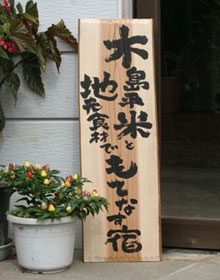 木島平米と
地元食材で
もてなす宿